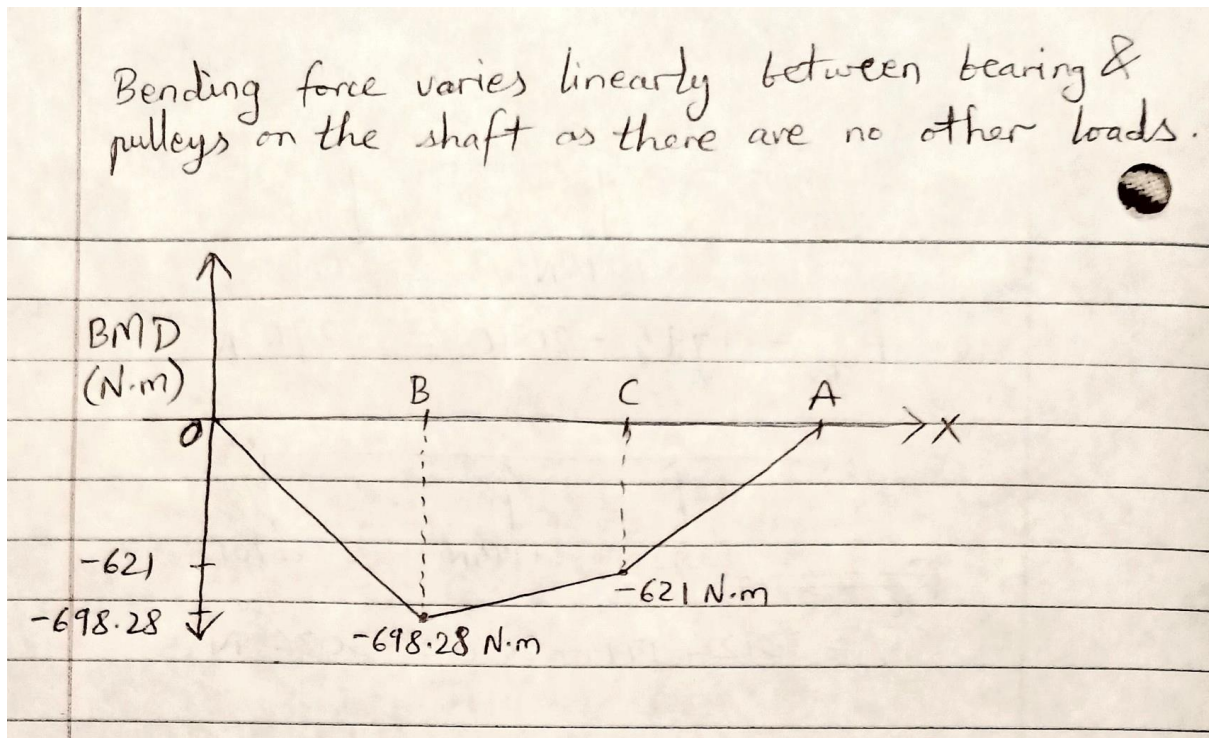 Bending force varies linearly between bearing &
pulleys on the shaft as there are no other loads.
BMD
(N.m)
B
C
A
O
X
-621
-621 N.m
-698.28
-698.28 N.m